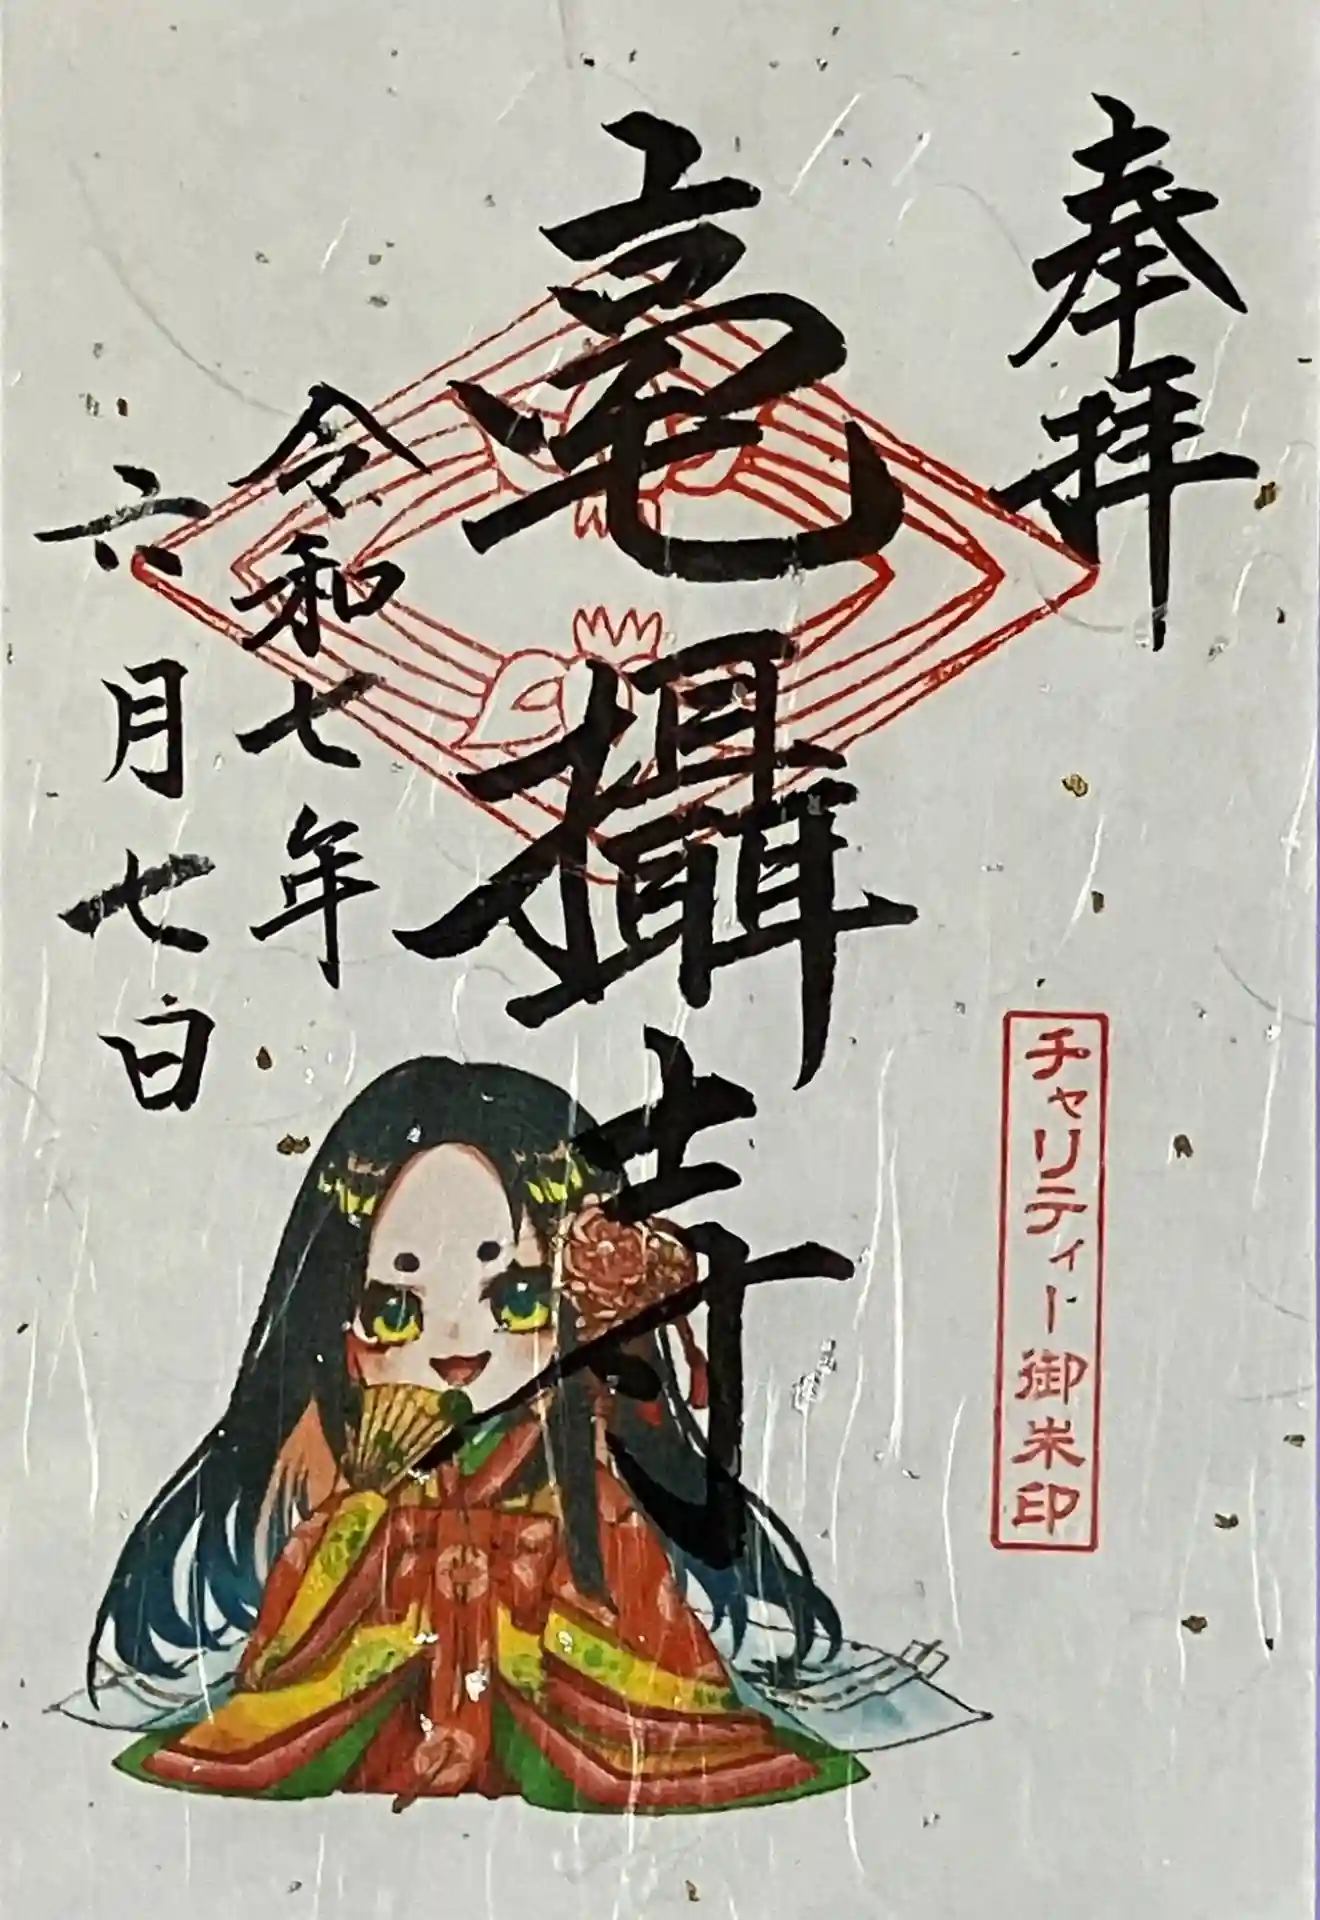 奉拝
毫攝寺
令和七年
六月七日
チャリティー御朱印